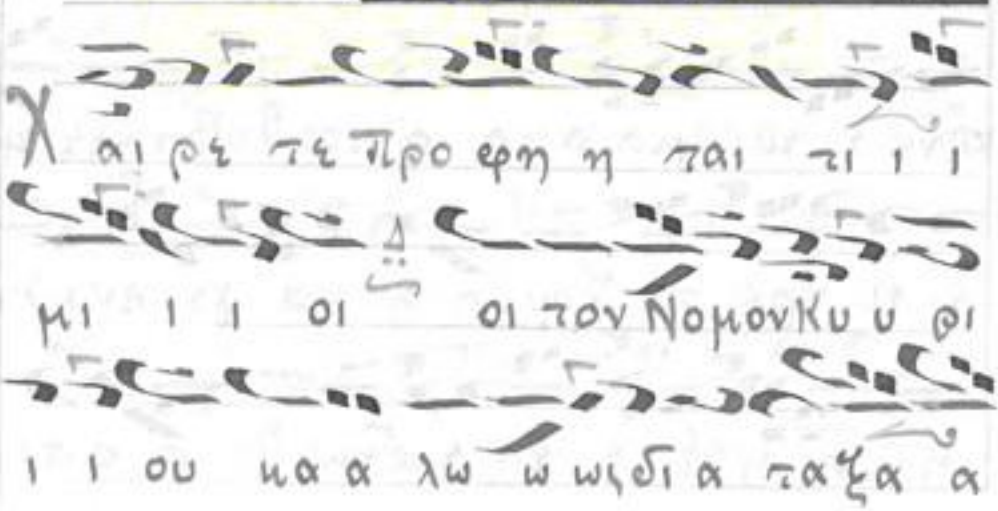 Χ αι ρε τε προ φη η ται τι ι ι
μι ι ι οι οι τον Νομον Κυ υ ρι
ι ι ου κα α λω ω ως δι α τα ξα α